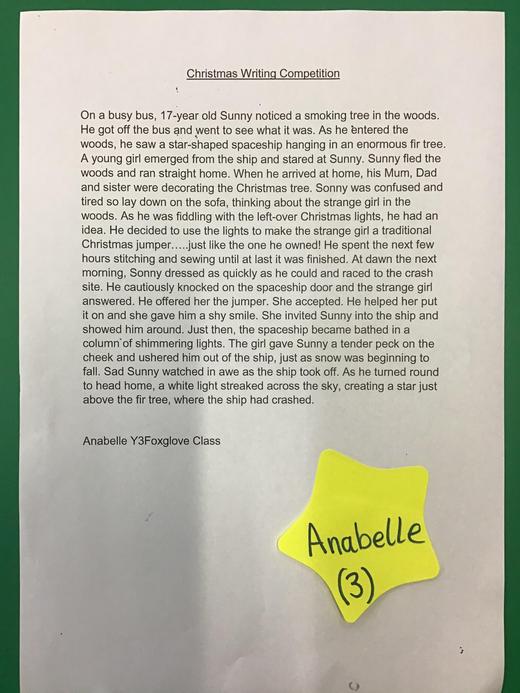 Christmas Writing Competition
On a busy bus, 17-year old Sunny noticed a smoking tree in the woods.
He got off the bus and went to see what it was. As he entered the
woods, he saw a star-shaped spaceship hanging in an enormous fir tree.
A young girl emerged from the ship and stared at Sunny. Sunny fled the
woods and ran straight home. When he arrived at home, his Mum, Dad
and sister were decorating the Christmas tree. Sonny was confused and
tired so lay down on the sofa, thinking about the strange girl in the
woods. As he was fiddling with the left-over Christmas lights, he had an
idea. He decided to use the lights to make the strange girl a traditional
Christmas jumper…..just like the one he owned! He spent the next few
hours stitching and sewing until at last it was finished. At dawn the next
morning, Sonny dressed as quickly as he could and raced to the crash
site. He cautiously knocked on the spaceship door and the strange girl
answered. He offered her the jumper. She accepted. He helped her put
it on and she gave him a shy smile. She invited Sunny into the ship and
showed him around. Just then, the spaceship became bathed in a
column of shimmering lights. The girl gave Sunny a tender peck on the
cheek and ushered him out of the ship, just as snow was beginning to
fall. Sad Sunny watched in awe as the ship took off. As he turned round
to head home, a white light streaked across the sky, creating a star just
above the fir tree, where the ship had crashed.
Anabelle Y3Foxglove Class
Anabelle
(3)